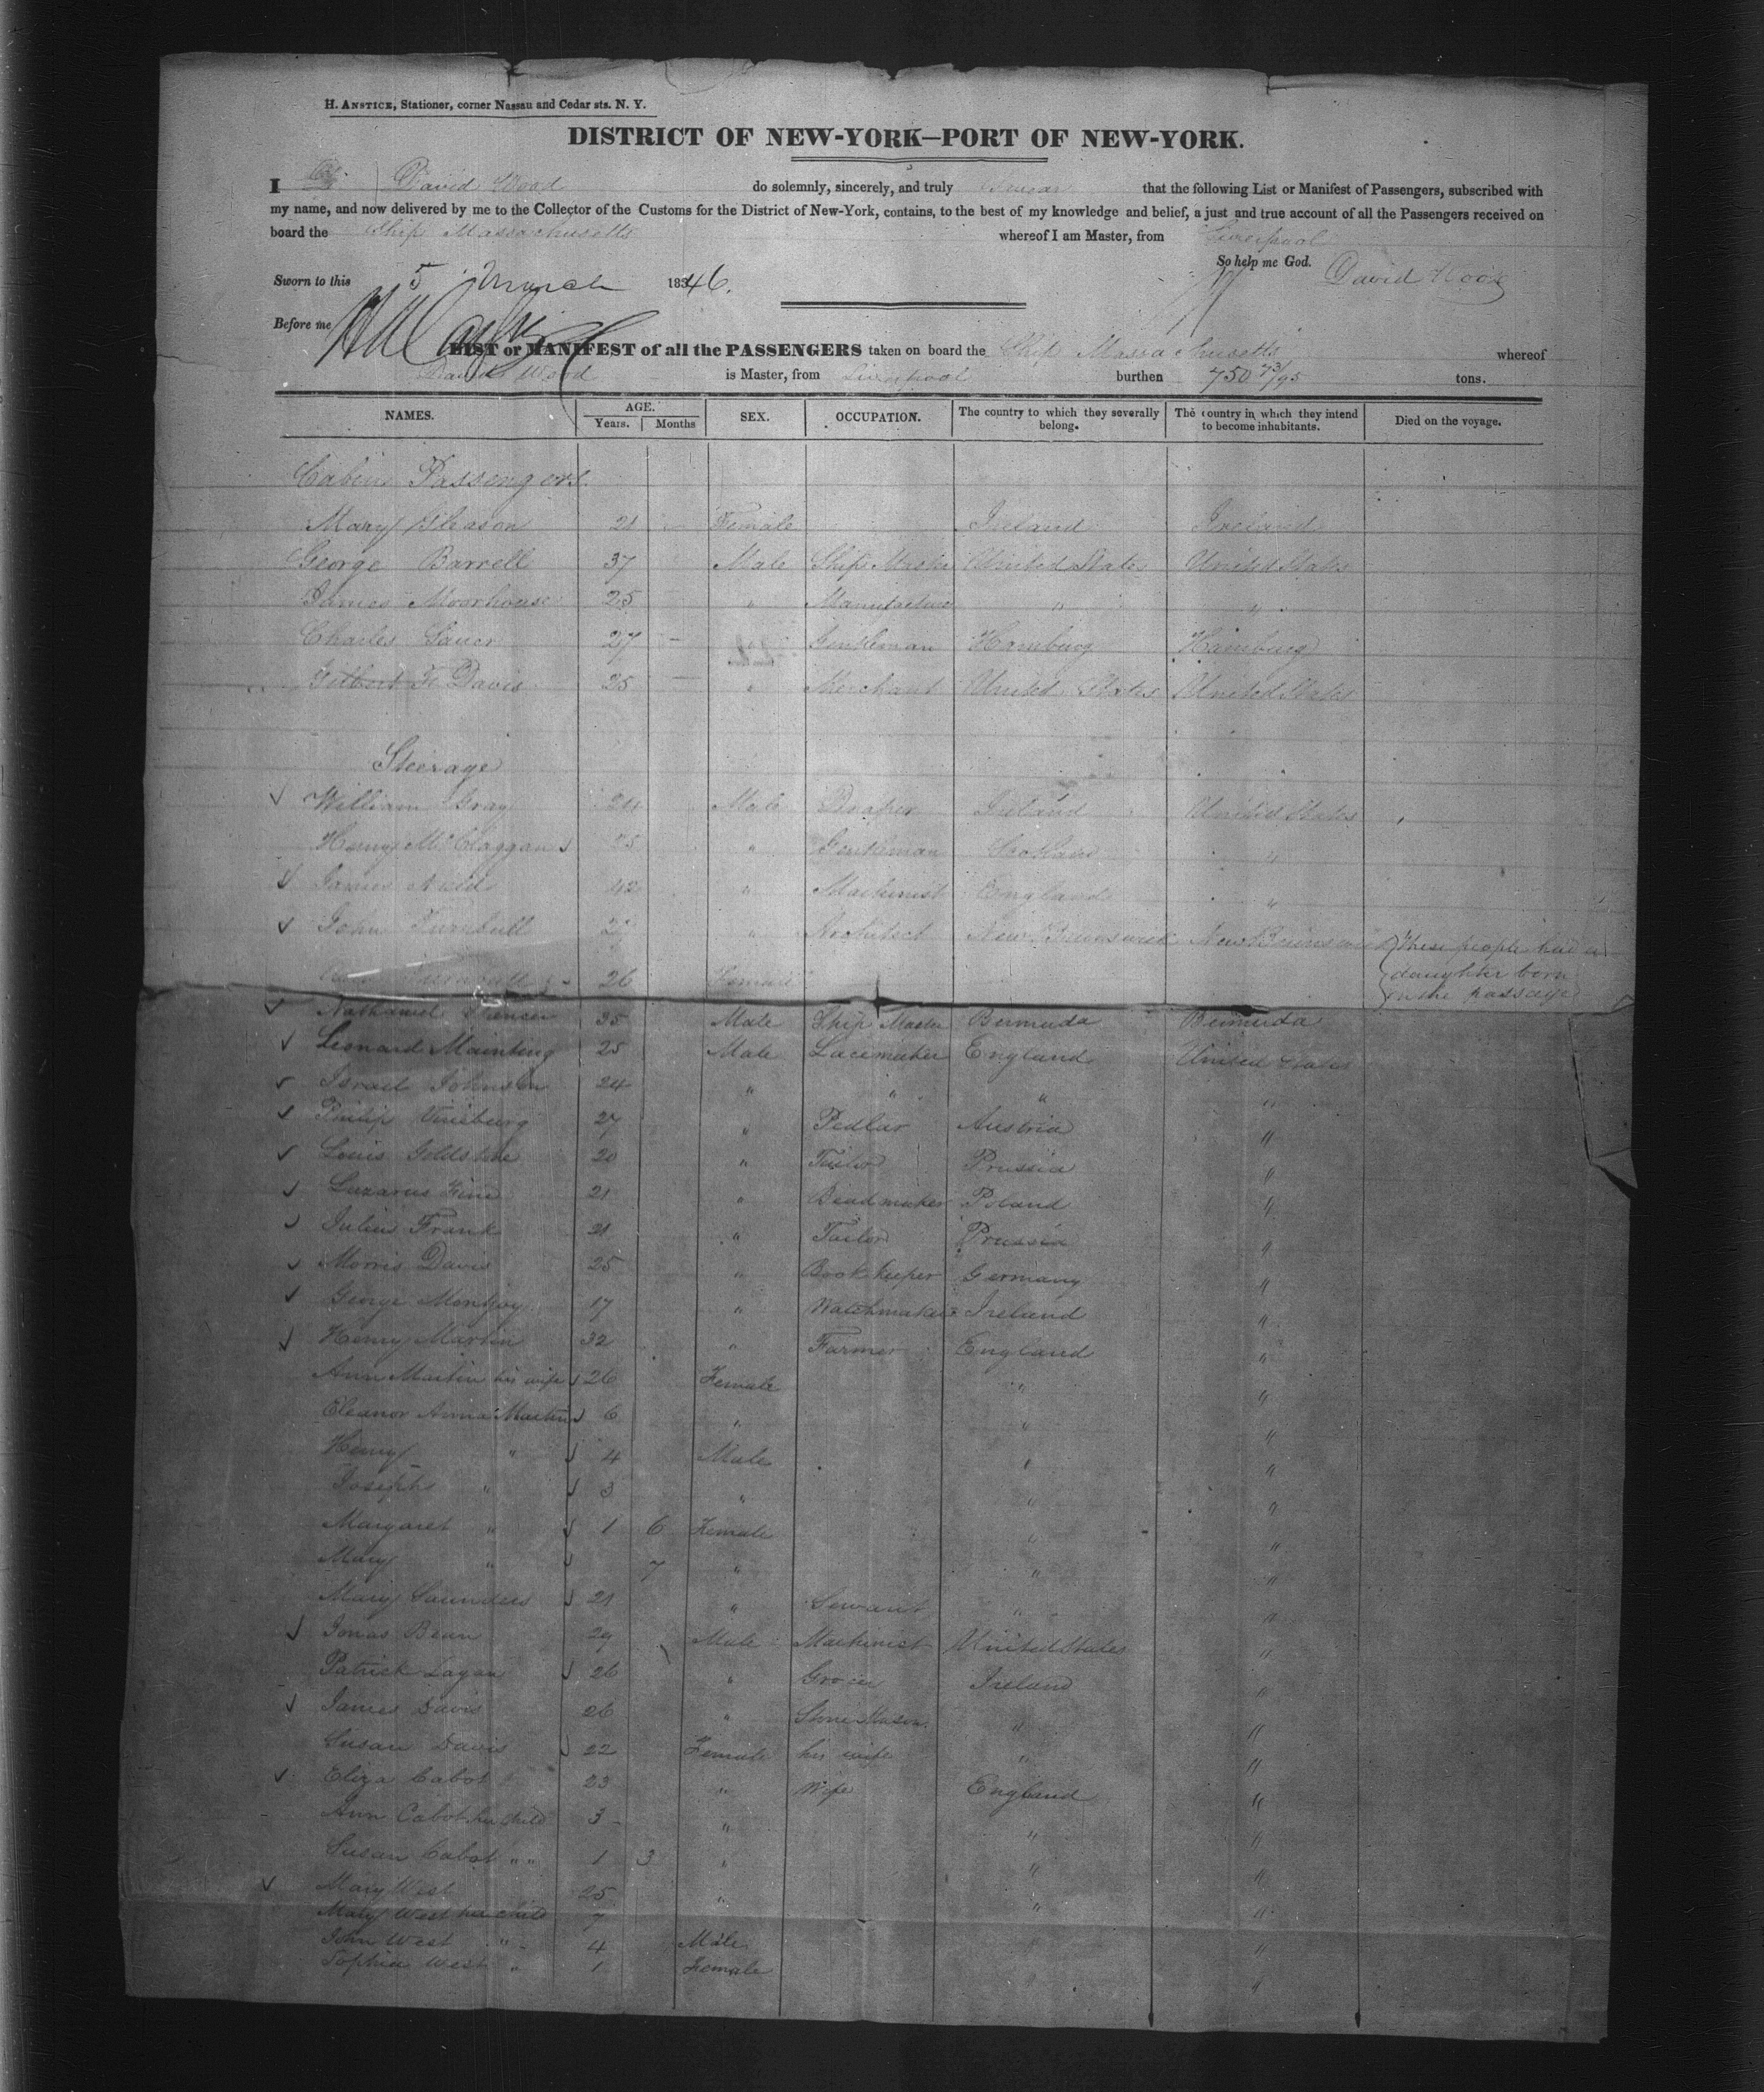 H. ANSTICE, Stationer, corner Nassau and Cedar sts. N. Y.
DISTRICT OF NEW-YORK—PORT OF NEW-YORK.
I David Wood do solemnly, sincerely, and truly that the following List or Manifest of Passengers, subscribed with
my name, and now delivered by me to the Collector of the Customs for the District of New-York, contains, to the best of my knowledge and belief, a just and true account of all the Passengers received on
board the Ship Massachusetts whereof I am Master, from Liverpool
So help me God. David Wood
Sworn to this 5 March 1846.
Before me
LIST or MANIFEST of all the PASSENGERS taken on board the Ship Massachusetts whereof
David Wood is Master, from Liverpool burthen 750 73/95 tons.
NAMES. AGE. Years. Months SEX. OCCUPATION. The country to which they severally belong. The country in which they intend to become inhabitants. Died on the voyage.
Cabin Passengers.
Mary Gleason 21 Female Ireland Ireland
George Barrell 37 Male Ship Master United States United States
James Moorhouse 25 " Manufacturer " "
Charles Sauer 27 - Gentleman Hamburg Hamburg
Davis 25 - " Merchant United States United States
Steerage
William Gray 24 Male Draper Ireland United States
Henry McClaggan " Gentleman Scotland "
James 42 " Machinist England "
John Turnbull " Architect New Brunswick New Brunswick These people had a
daughter born
on the passage
26 Female
Nathaniel 35 Male Ship Master Bermuda Bermuda
Leonard 25 Male Lacemaker England United States
Israel Johnson 24 " " " "
Philip 27 " Pedlar Austria "
Louis Goldstine 20 " Tailor Prussia "
Lazarus 21 " Poland "
Julius Frank 21 " Tailor Prussia "
Morris Davis 25 " Book keeper Germany "
George Montjoy 17 " Watchmaker Ireland "
Henry Martin 32 " Farmer England "
Ann Martin his wife 26 Female " "
Eleanor Anna Martin 6 " " "
Henry " 4 Male " "
Joseph " 3 " " "
Margaret " 1 6 Female " "
Mary " 7 " " "
Mary Saunders 21 " Servant " "
Jonas Bean 29 Male Machinist United States "
Patrick Lagan 26 " Grocer Ireland "
James Davis 26 " Stone Mason " "
Susan Davis 22 Female his wife " "
Eliza Cabot 23 " Wife England "
Ann Cabot her child 3 " " "
Susan Cabot " " 1 3 " " "
Mary West 25 " " "
Mary West her child 7
John West " 4 Male " "
Sophia West " 1 Female " "